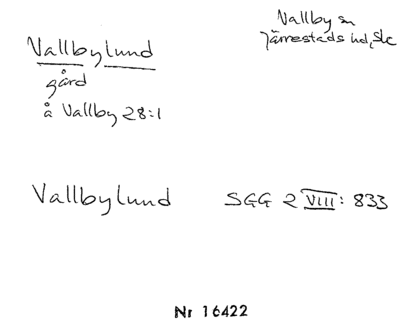 Vallby sn
Järrestads hd, Sk
Vallbylund
gård
å Vallby 28:1
Vallbylund SGG 2 VIII: 833
Nr 16422